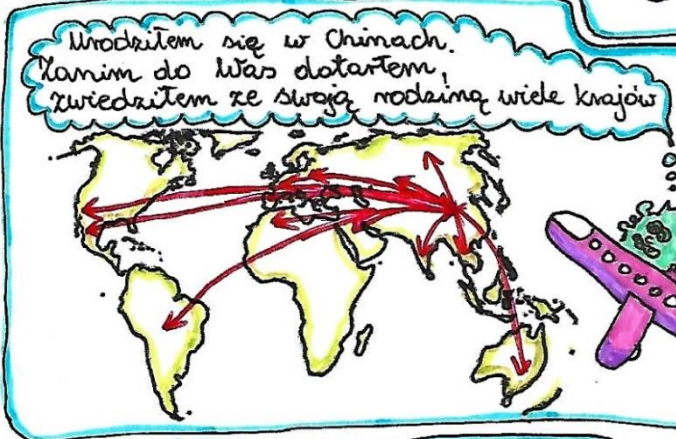 Urodziłem się w Chinach.
Zanim do Was dotarłem,
zwiedziłem ze swoją rodziną wiele krajów